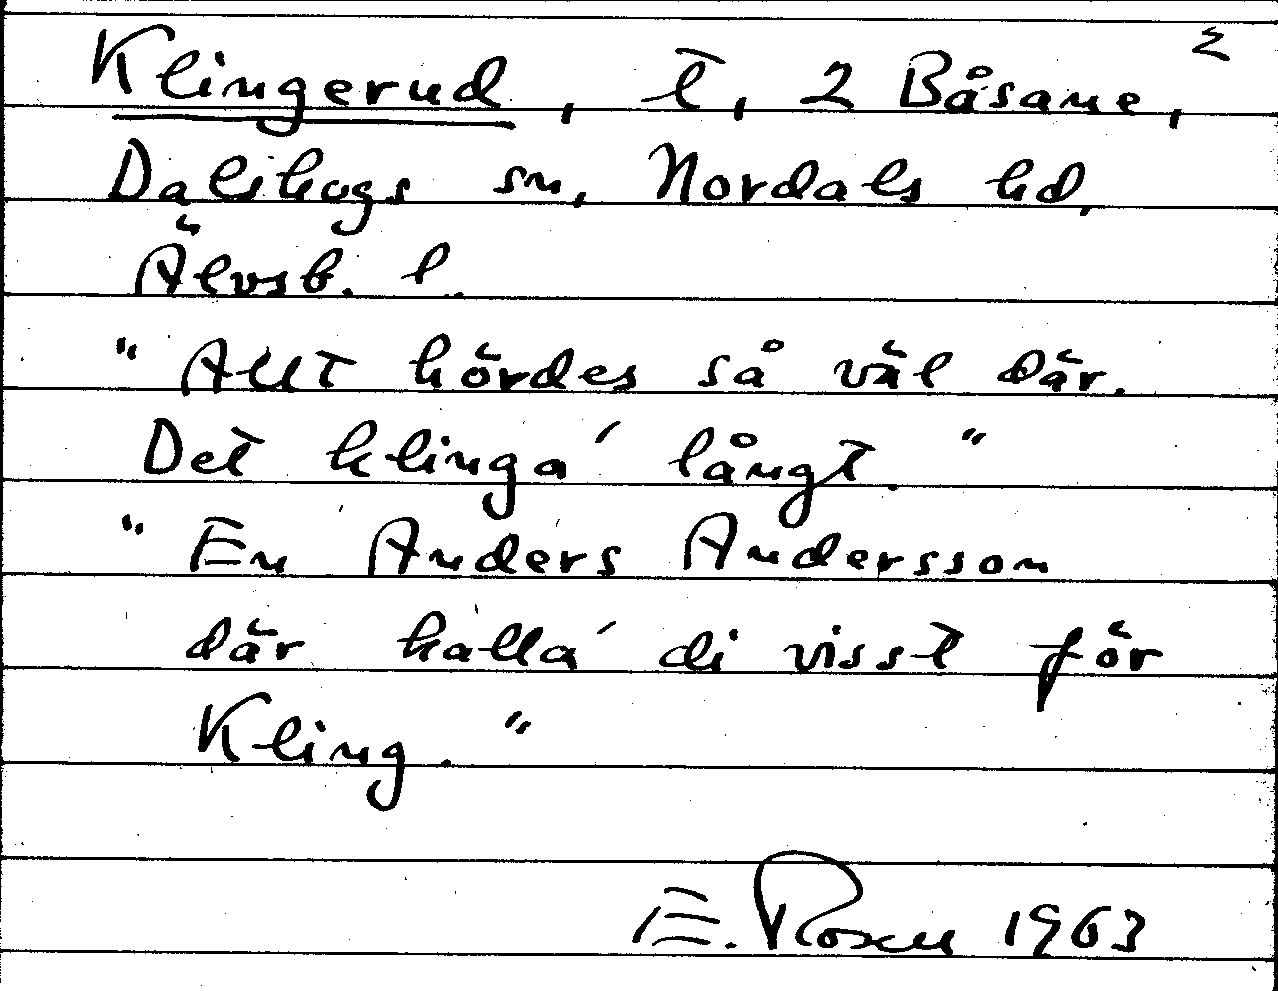 2
Klingerud, t, 2 Båsane,
Dalskogs sn, Nordals hd,
Älvsb. l.
"Allt hördes så väl där.
Det klinga' långt."
"En Anders Andersson
där kalla' di visst för
Kling."
E. Rosell 1963